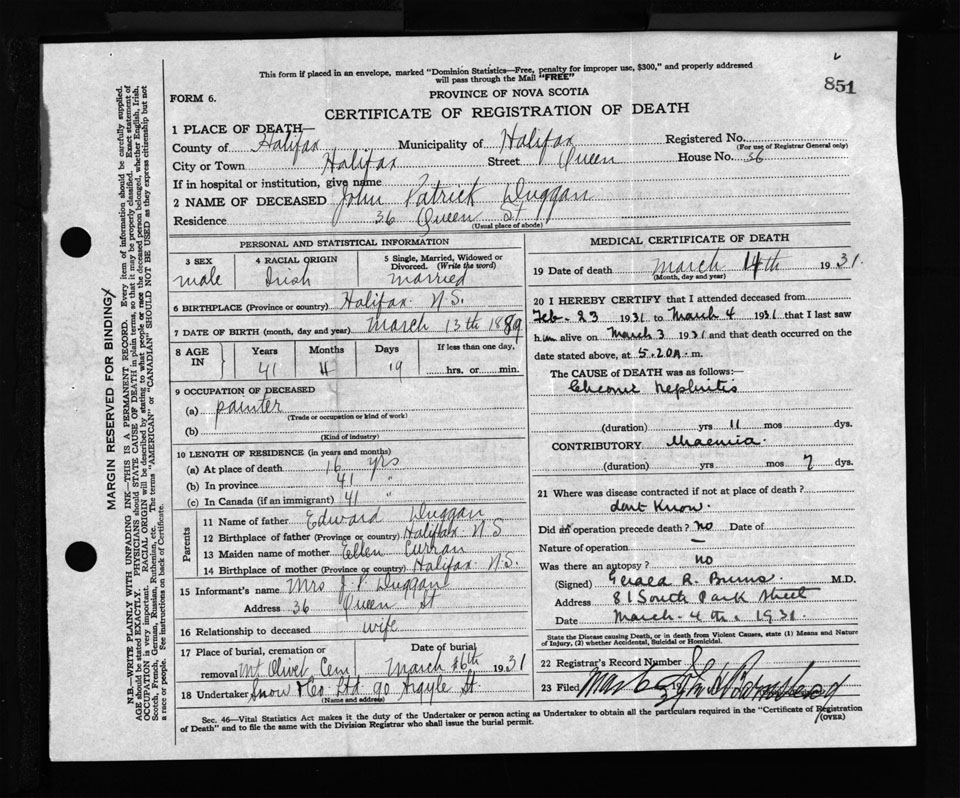 This form if placed in an envelope, marked "Dominion Statistics—Free, penalty for improper use, $300," and properly addressed
will pass through the Mail "FREE"
851
FORM 6.
PROVINCE OF NOVA SCOTIA
CERTIFICATE OF REGISTRATION OF DEATH
1 PLACE OF DEATH—
County of Halifax Municipality of Halifax Registered No.
(For use of Registrar General only)
City or Town Halifax Street Queen House No. 36
If in hospital or institution, give name
2 NAME OF DECEASED John Patrick Duggan
Residence 36 Queen St
(Usual place of abode)
PERSONAL AND STATISTICAL INFORMATION
3 SEX 4 RACIAL ORIGIN 5 Single, Married, Widowed or Divorced. (Write the word)
male Irish married
6 BIRTHPLACE (Province or country) Halifax N.S.
7 DATE OF BIRTH (month, day and year) March 13th 1889
8 AGE IN Years Months Days If less than one day,
41 19 hrs. or min.
9 OCCUPATION OF DECEASED
(a) painter
(Trade or occupation or kind of work)
(b)
(Kind of industry)
10 LENGTH OF RESIDENCE (in years and months)
(a) At place of death 16 yrs
(b) In province 41 "
(c) In Canada (if an immigrant) 41 "
Parents
11 Name of father Edward Duggan
12 Birthplace of father (Province or country) Halifax N S
13 Maiden name of mother Ellen Curran
14 Birthplace of mother (Province or country) Halifax N.S.
15 Informant's name Mrs J. P. Duggan
Address 36 Queen St
16 Relationship to deceased wife
17 Place of burial, cremation or removal Date of burial
Mt Olivet Cem March 6th 1931
18 Undertaker Snow & Co. Ltd 90 Argyle St.
(Name and address)
MEDICAL CERTIFICATE OF DEATH
19 Date of death March 4th 1931.
(Month, day and year)
20 I HEREBY CERTIFY that I attended deceased from
Feb- 23 1931 to March 4 1931 that I last saw
him alive on March 3 1931 and that death occurred on the
date stated above, at 5.20 a. m.
The CAUSE of DEATH was as follows:
Chronic Nephritis
(duration) yrs 11 mos dys.
CONTRIBUTORY Uraemia.
(duration) yrs mos 7 dys.
21 Where was disease contracted if not at place of death?
dont know.
Did an operation precede death? no Date of
Nature of operation –
Was there an autopsy? no
(Signed) Gerald R. Burns. M.D.
Address 81 South Park Street
Date March 4th. 1931.
State the Disease causing Death, or in death from Violent Causes, state (1) Means and
Nature of Injury, (2) whether Accidental, Suicidal or Homicidal.
22 Registrar's Record Number
23 Filed
Sec. 46—Vital Statistics Act makes it the duty of the Undertaker or person acting as Undertaker to obtain all the particulars required in the "Certificate of Registration
of Death" and to file the same with the Division Registrar who shall issue the burial permit.
(OVER)
MARGIN RESERVED FOR BINDING
N.B.—WRITE PLAINLY WITH UNFADING INK—THIS IS A PERMANENT RECORD. Every item of information should be carefully supplied.
AGE should be stated EXACTLY. PHYSICIANS should STATE CAUSE OF DEATH in plain terms, so that it may be properly classified. Exact statement of
OCCUPATION is very important. RACIAL ORIGIN will be described by stating to what people or race the deceased person belonged, whether English, Irish,
Scotch, French, German, Russian, Ruthenian, etc. The terms "AMERICAN" or "CANADIAN" SHOULD NOT BE USED as they express citizenship but not
a race or people. See instructions on back of Certificate.